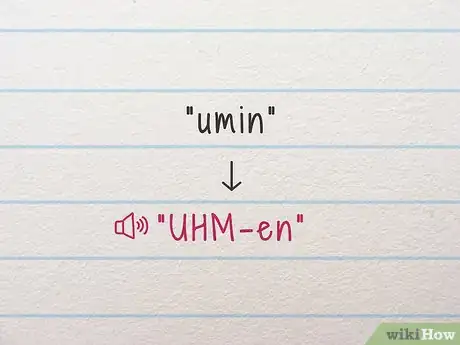 "umin"
↓
"UHM-en"
wikiHow